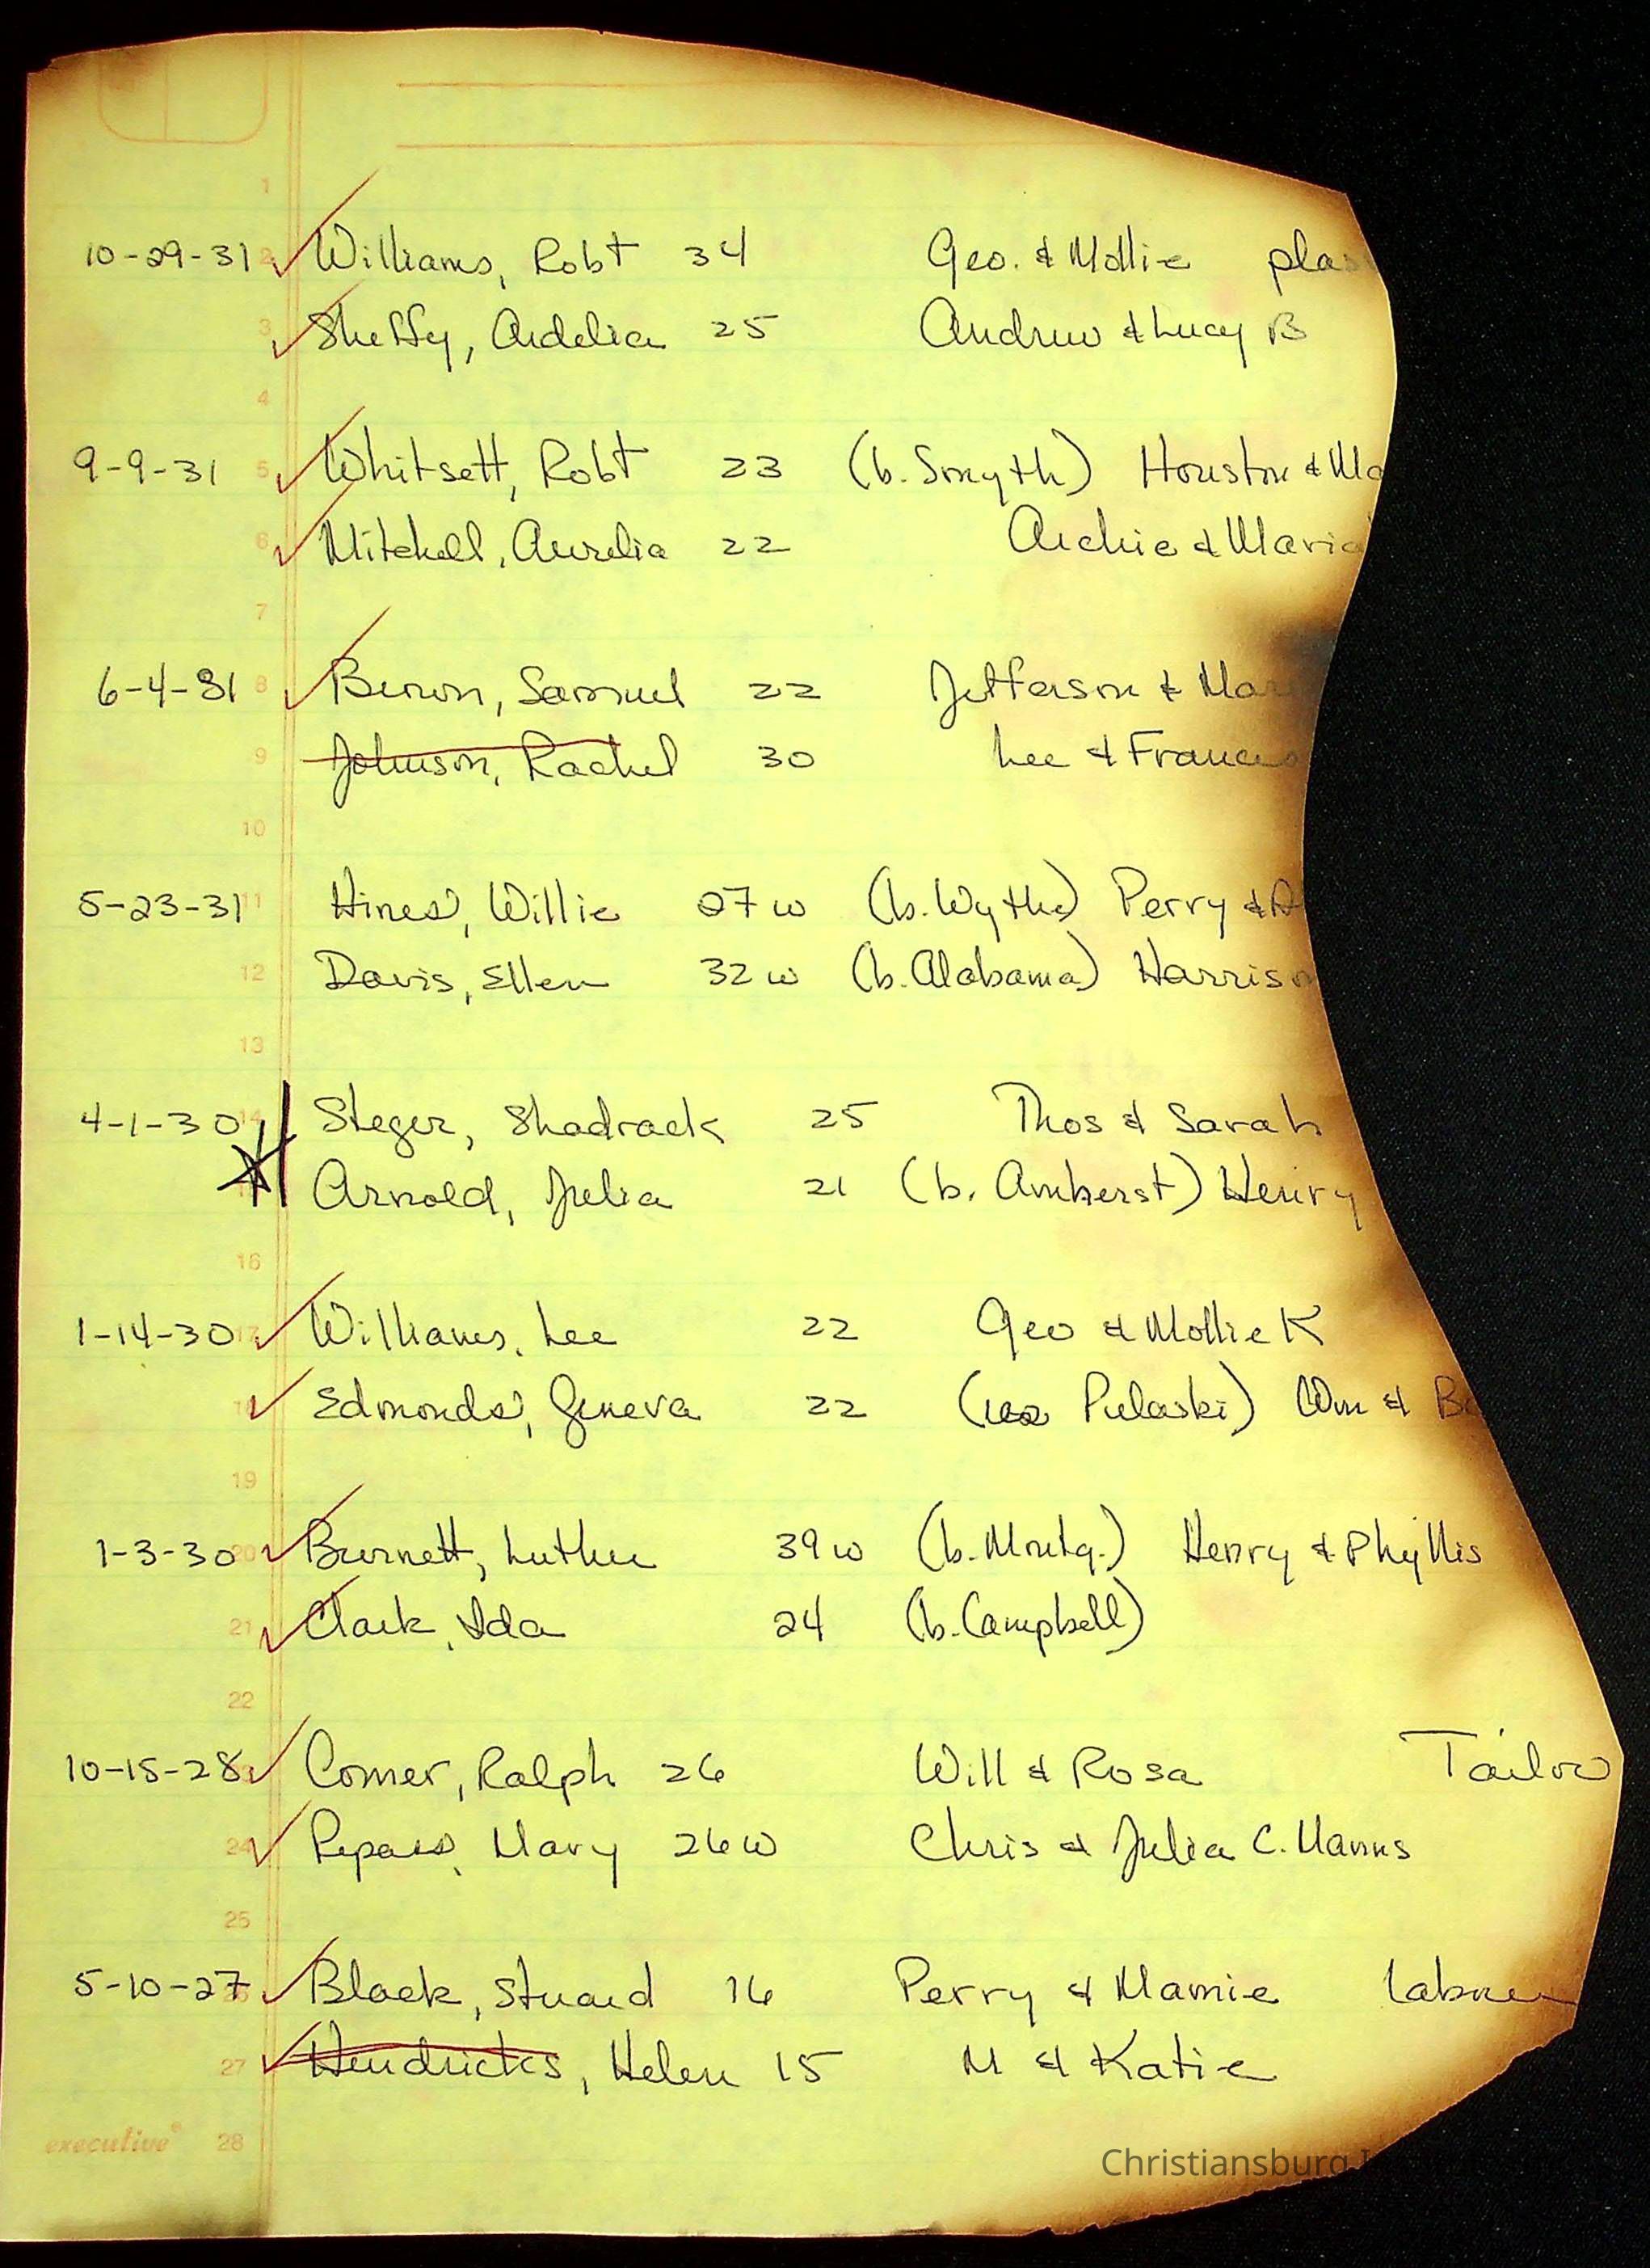 1
10-29-31 2 Williams, Robt 34 Geo. & Mollie plas
3 Sheffy, Ardelia 25 Andrew & Lucy B
4
9-9-31 5 Whitsett, Robt 23 (b. Smyth) Houston & Ma
6 Mitchell, Aurelia 22 Archie & Maria
7
6-4-31 8 Brown, Samuel 22 Jefferson & Mar
9 Johnson, Rachel 30 Lee & Frances
10
5-23-31 11 Hines, Willie 27w (b. Wythe) Perry &
12 Davis, Ellen 32w (b. Alabama) Harrison
13
4-1-30 14 Steger, Shadrack 25 Thos & Sarah
Arnold, Julia 21 (b. Amherst) Henry
16
1-14-30 17 Williams, Lee 22 Geo & Mollie K
18 Edmonds, Geneva 22 (res Pulaski) Wm & Be
19
1-3-30 20 Burnett, Luther 39w (b. Montg.) Henry & Phyllis
21 Clark, Ida 24 (b. Campbell)
22
10-15-28 Comer, Ralph 26 Will & Rosa Tailor
24 Repass, Mary 26w Chris & Julia C. Hanks
25
5-10-27 26 Black, Stuard 16 Perry & Mamie labner
27 Hendricks, Helen 15 M & Katie
executive® 28
Christiansburg